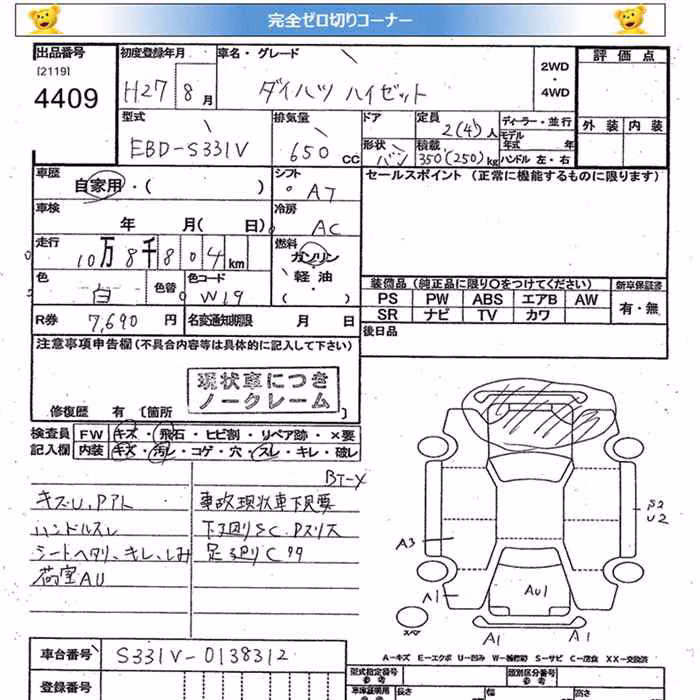 完全ゼロ切りコーナー
出品番号
[2119]
4409
初度登録年月
H27 8月
車名・グレード
ダイハツ ハイゼット
2WD
・
4WD
評価点
外装 内装
型式
EBD-S331V
排気量
650 CC
ドア
形状
バン
定員
2(4)人
積載
350(250)kg
ディーラー・並行
モデル
年式 年
ハンドル 左・右
車歴
自家用・( )
シフト
AT
セールスポイント (正常に機能するものに限ります)
車検
年 月( 日)
冷房
AC
走行
10万8千804km
燃料
ガソリン
軽油
( )
色
白
色替
色コード
W19
装備品 (純正品に限り〇をつけてください)
新車保証書
PS PW ABS エアB AW
有・無
SR ナビ TV カワ
R券 7,690円
名変通知期限 月 日
後日品
注意事項申告欄 (不具合内容等は具体的に記入して下さい)
現状車につき
ノークレーム
修復歴 有 [箇所 ]
検査員
記入欄
FW キズ・飛石・ヒビ割・リペア跡・×要
内装 キズ・汚レ・コゲ・穴・スレ・キレ・破レ
BT-X
キズU、Pアト
ハンドルスレ
シートヘタリ、キレ、しみ
荷室AU
事故現状車下見要
下廻りSC、Pスリス
足廻りC
S2
U2
A3
A1
AU1
スペア
A1 A1
A-キズ E-エクボ U-凹み W-補修跡 S-サビ C-腐食 XX-交換済
車台番号 S331V-0138312
登録番号
型式指定番号
参考
類別区分番号
参考
車庫証明用
長さ 幅 高さ